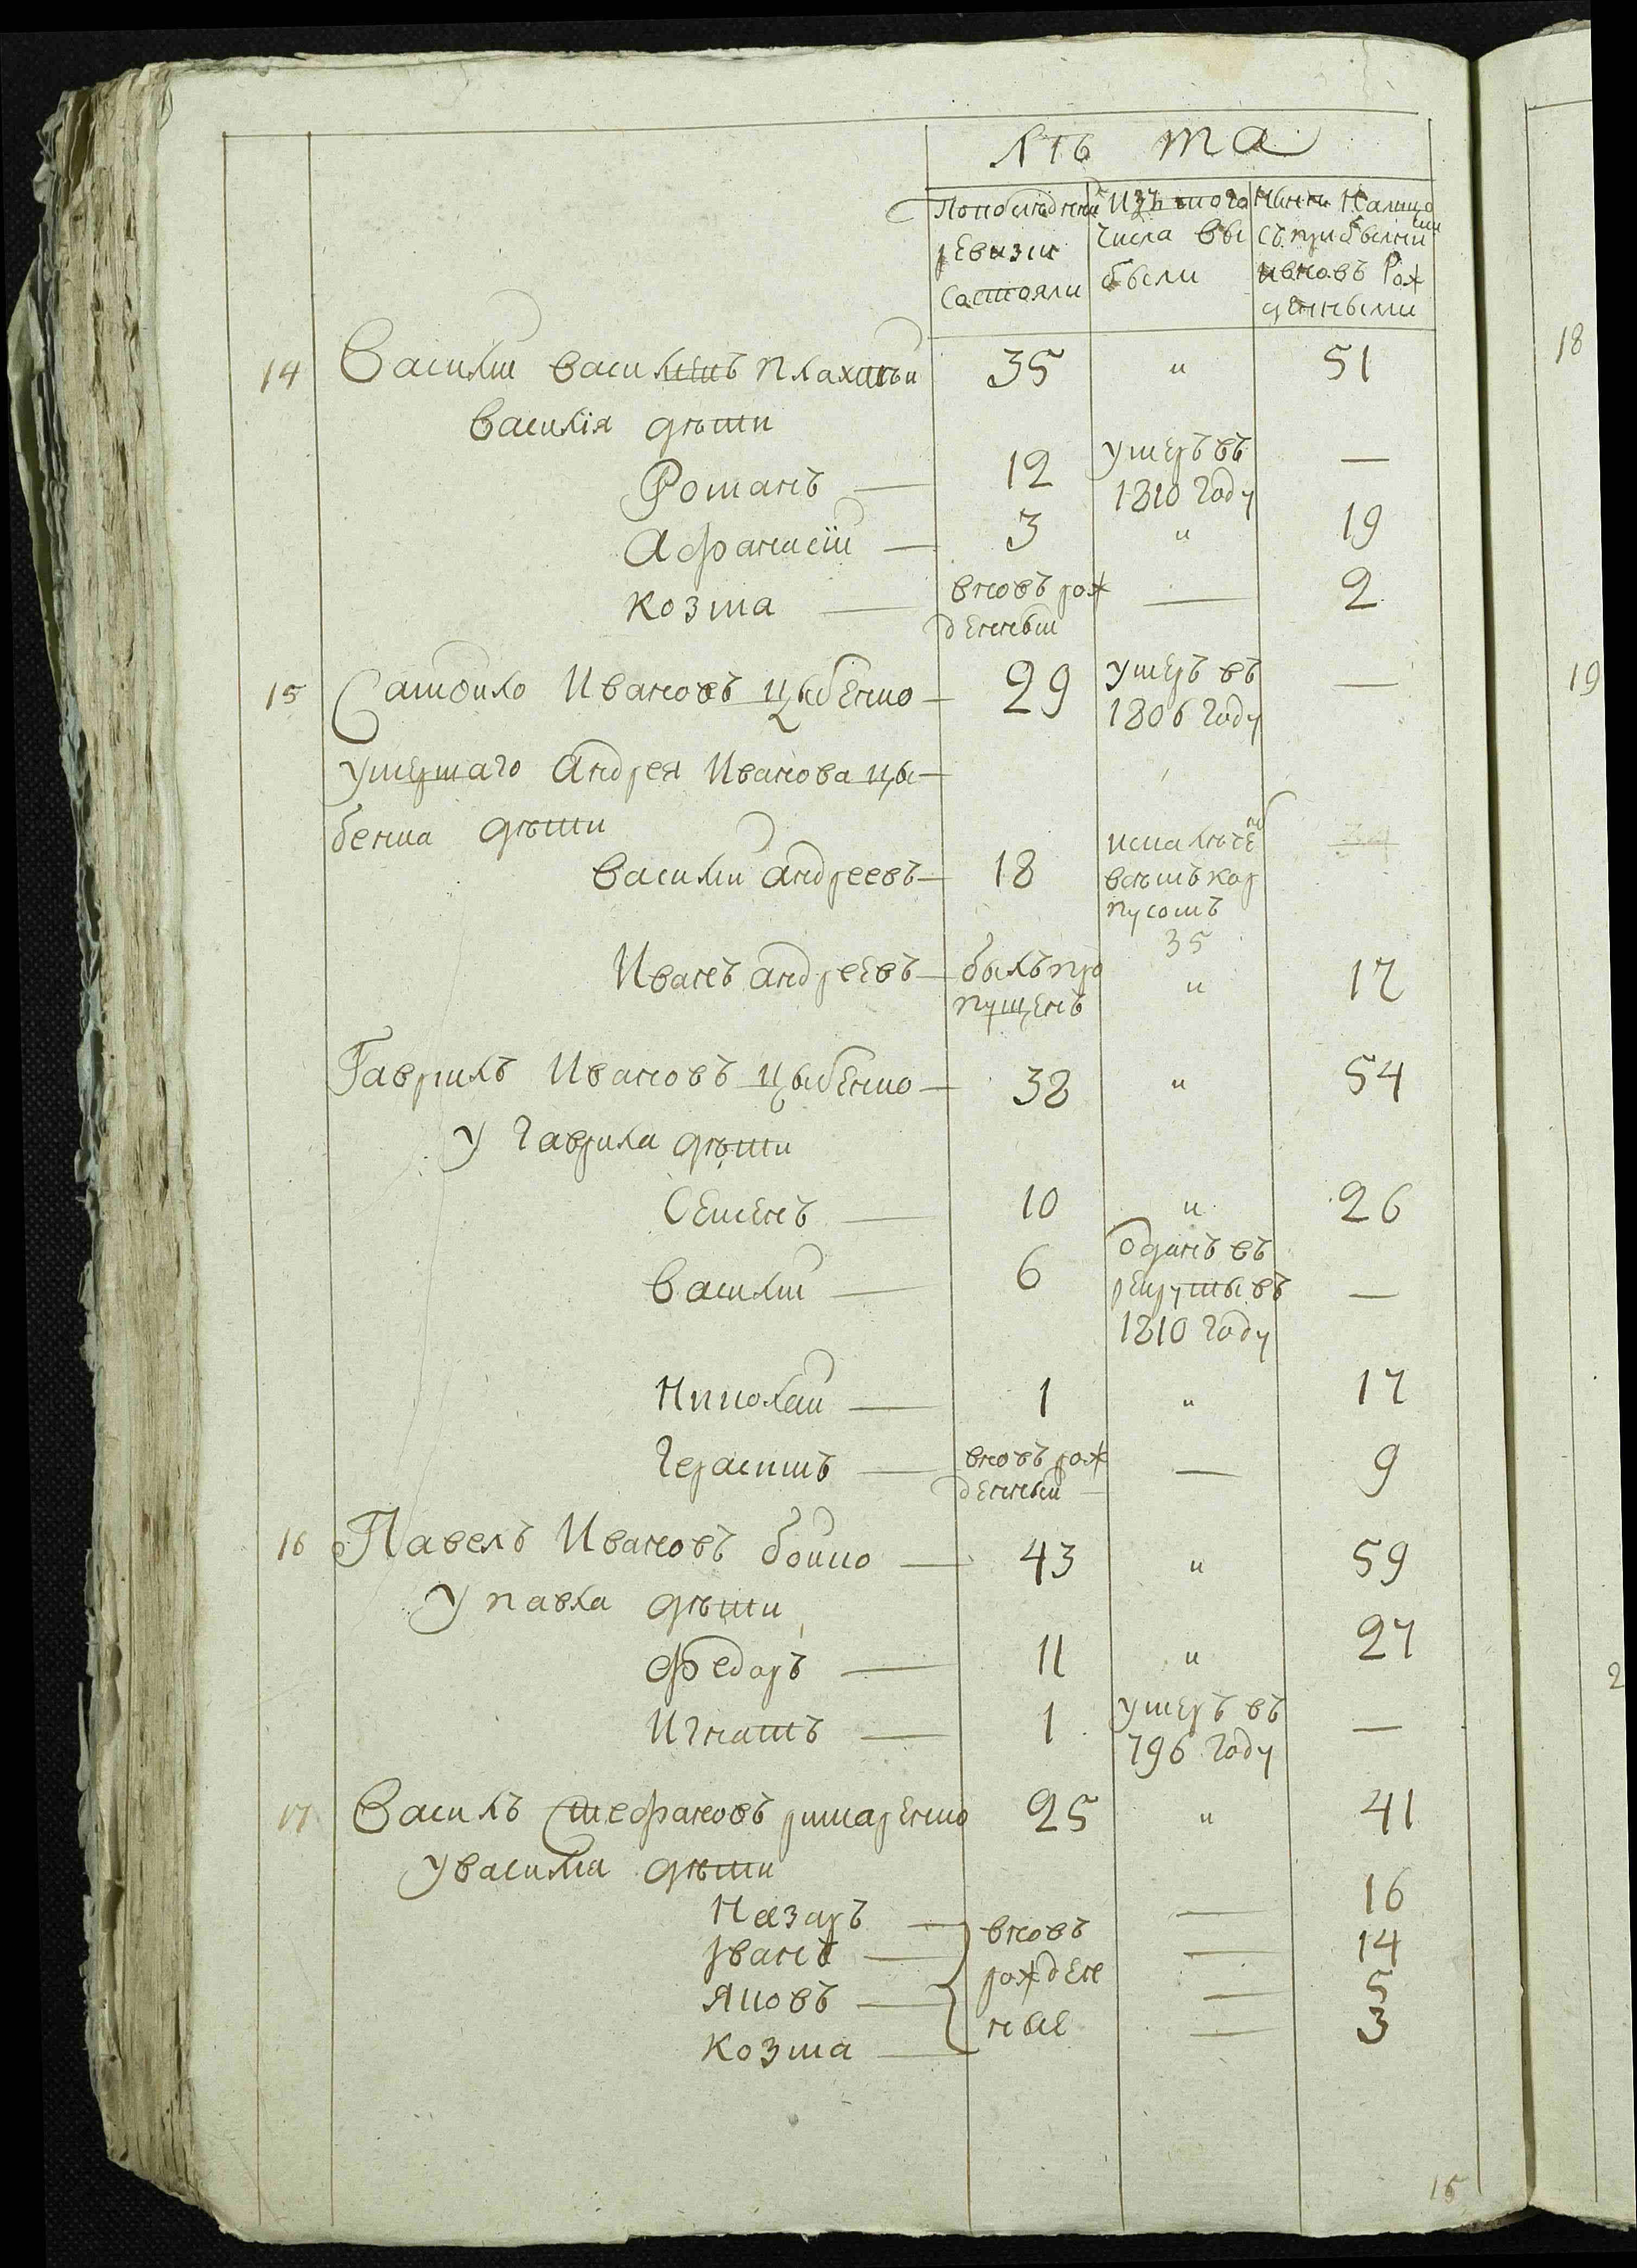 лѣта
По последней ревизии состояли
Изъ того числа выбыли
Ныне на лицо съ прибылыми и вновь рожденными
14 Василий Васильевъ Плахтѣй 35 " 51
Василія дѣти
Романъ — 12 умеръ въ 1810 году —
Афанасій — 3 " 19
Козма — вновь рожденный — 2
15 Самойло Ивановъ Цыбенко — 29 умеръ въ 1806 году —
умершаго Андрея Иванова Цы-
бенка дѣти
Василий Андреевъ — 18
35
Иванъ Андреевъ — былъ пропущенъ " 17
Гаврилъ Ивановъ Цыбенко — 38 " 54
у Гаврила дѣти
Семенъ — 10 " 26
Василий — 6 отданъ въ рекруты въ 1810 году —
Николай — 1 " 17
Герасимъ — вновь рожденный — 9
16 Павелъ Ивановъ Бойко — 43 " 59
у Павла дѣти
Федоръ — 11 " 27
Игнатъ — 1 умеръ въ 796 году —
17 Василъ Стефановъ Римаренко 25 " 41
у Василия дѣти
Назаръ — вновь рожденные — 16
Иванъ — — 14
Яковъ — — 5
Козма — — 3
15
18
19
2